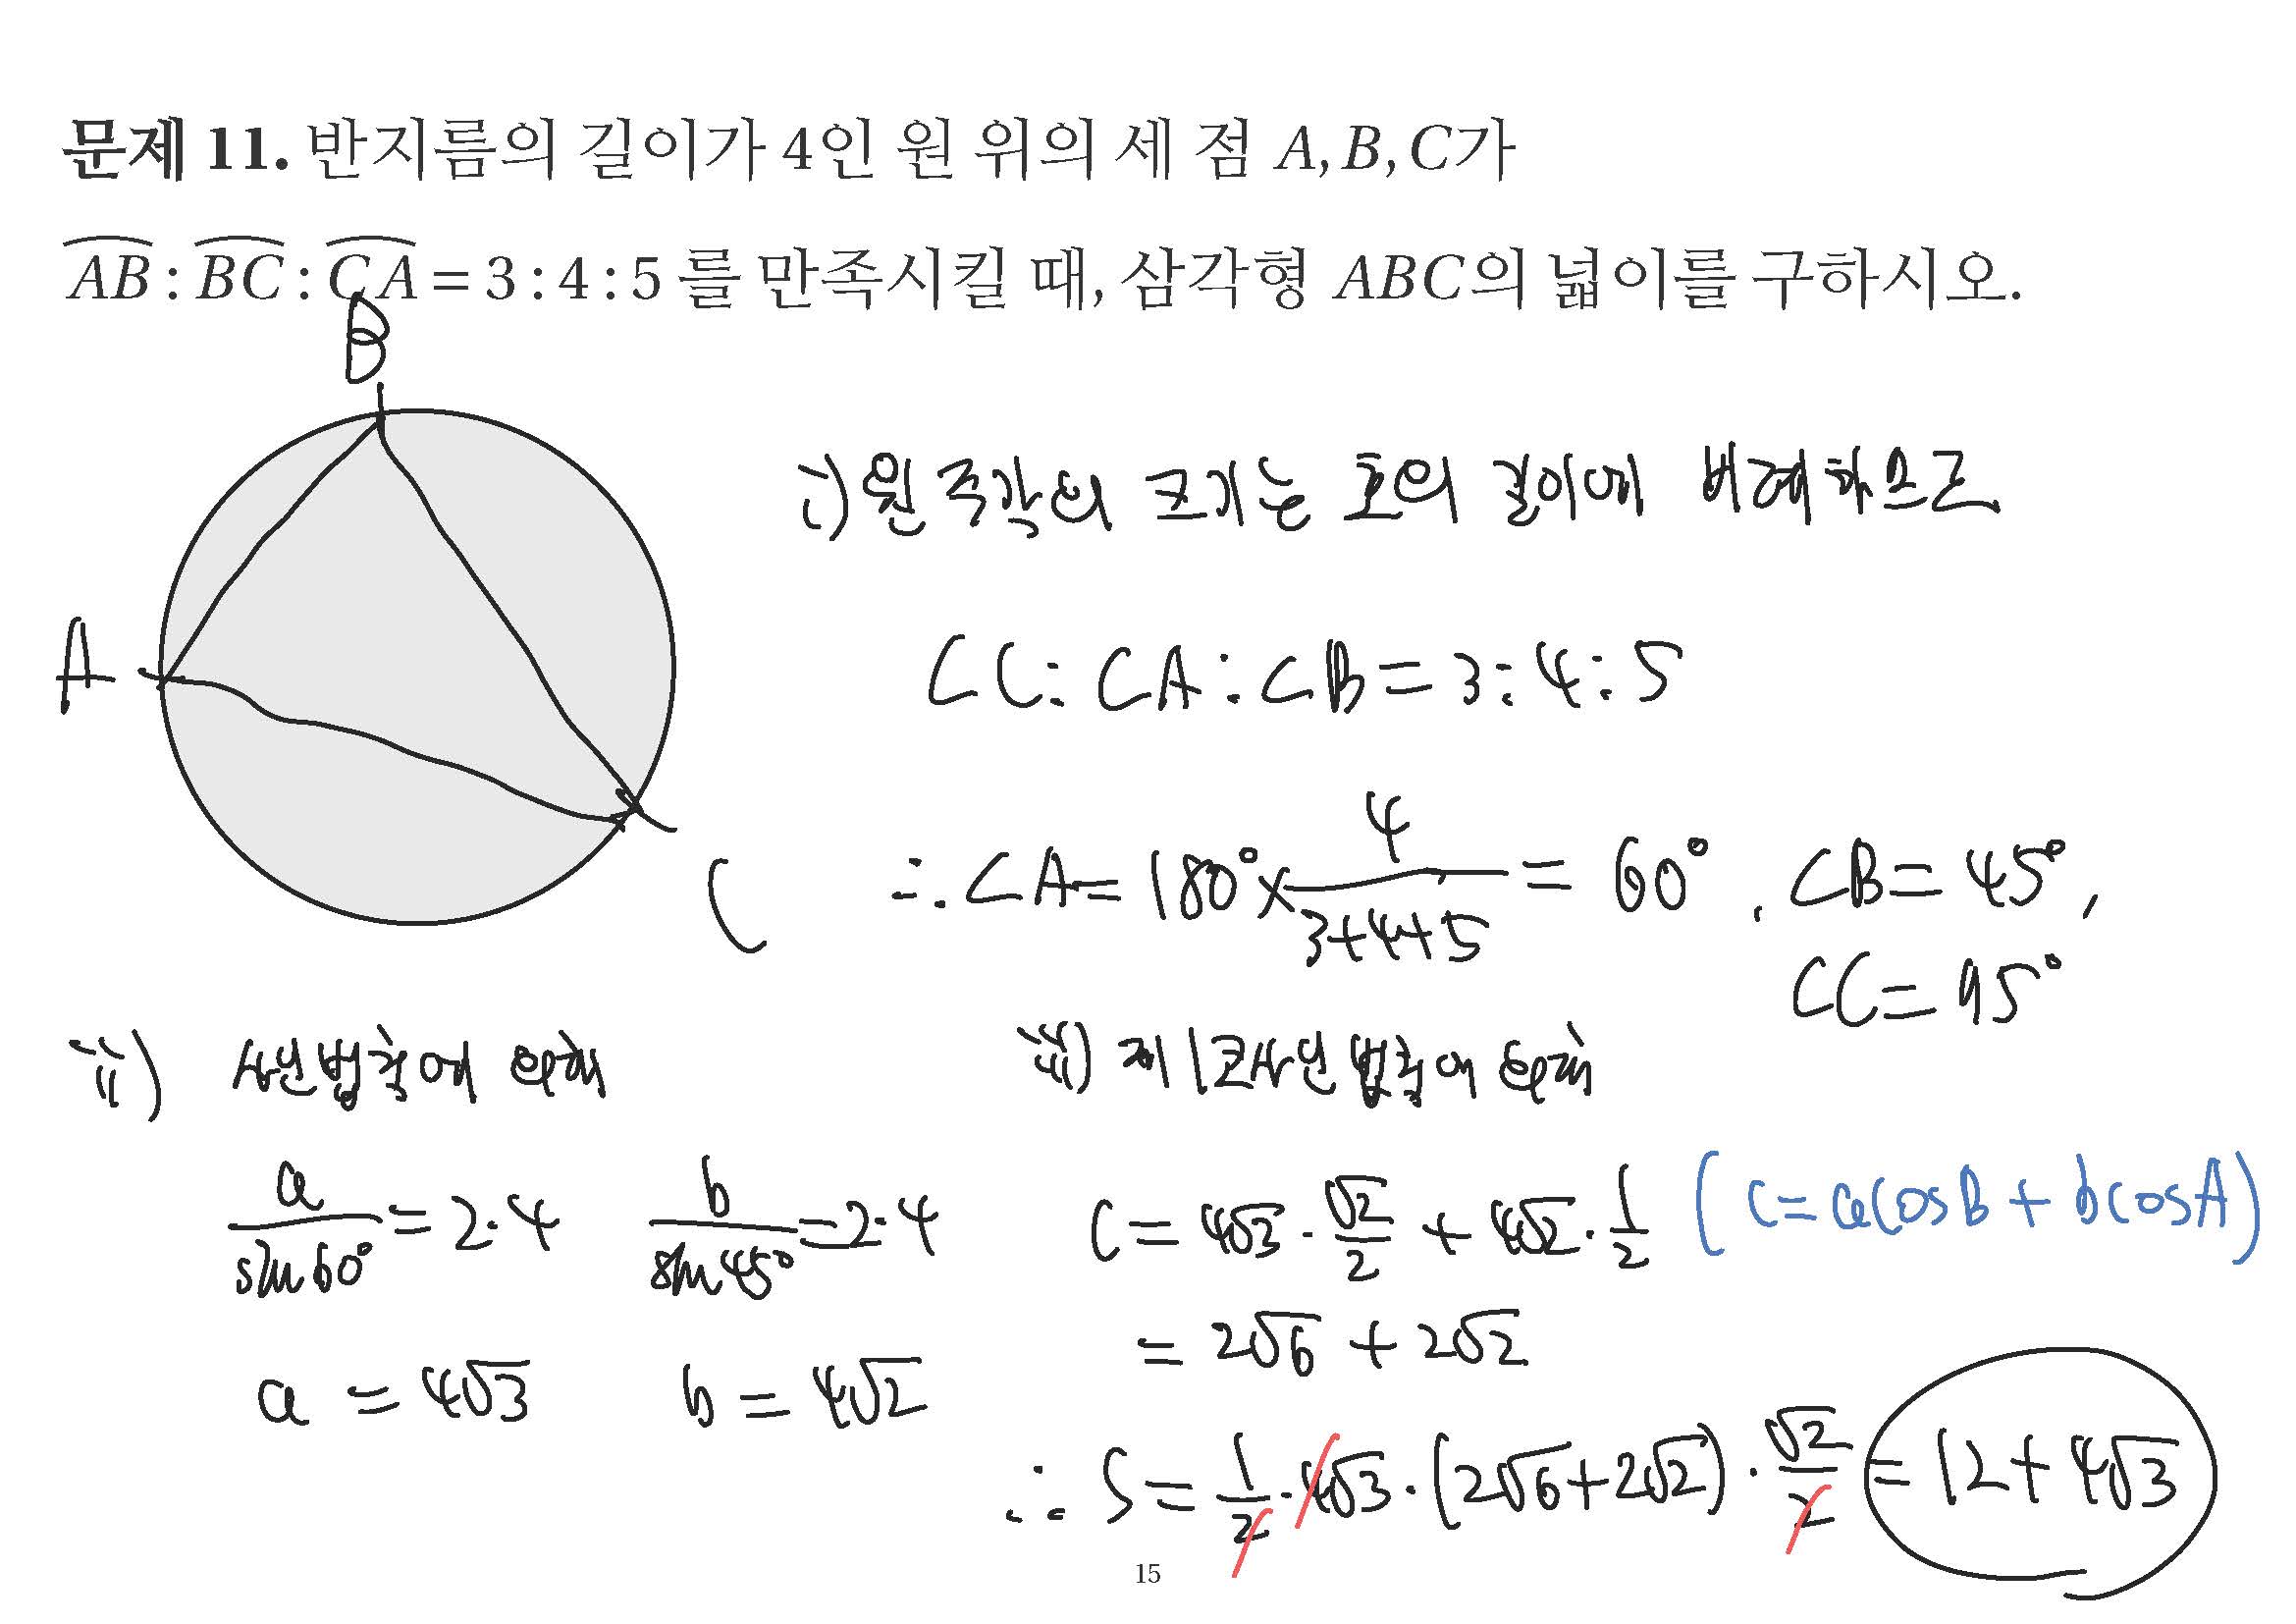 문제 11. 반지름의 길이가 4인 원 위의 세 점 A, B, C가
AB : BC : CA = 3 : 4 : 5 를 만족시킬 때, 삼각형 ABC의 넓이를 구하시오.
B
A
C
i) 원주각의 크기는 호의 길이에 비례하므로
∠C : ∠A : ∠B = 3 : 4 : 5
∴ ∠A = 180° × 4/(3+4+5) = 60°, ∠B = 45°,
∠C = 95°
ii) 사인법칙에 의해
a/sin60° = 2·4 b/sin45° = 2·4
a = 4√3 b = 4√2
iii) 제1코사인법칙에 의해
C = 4√3 · √2/2 + 4√2 · 1/2 (c = a cosB + b cosA)
= 2√6 + 2√2
∴ S = 1/2 · 4√3 · (2√6 + 2√2) · √2/2 = 12 + 4√3
15